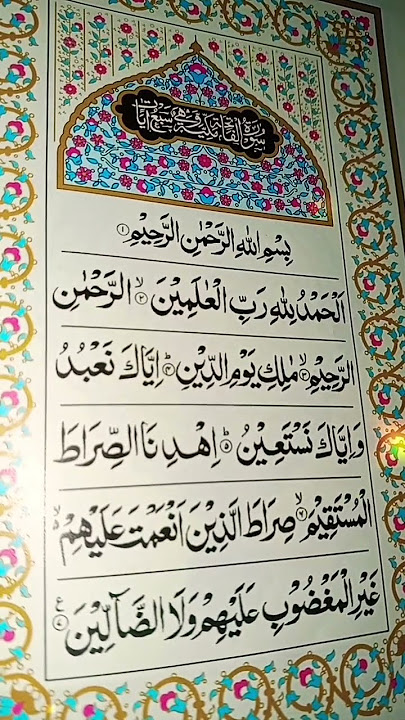 سورة الفاتحة مكية وهي سبع آيات
بِسْمِ اللهِ الرَّحْمٰنِ الرَّحِيْمِ ۝۱
اَلْحَمْدُ لِلّٰهِ رَبِّ الْعٰلَمِيْنَ ۙ۝۲ الرَّحْمٰنِ
الرَّحِيْمِ ۙ۝۳ مٰلِكِ يَوْمِ الدِّيْنِ ؕ۝۴ اِيَّاكَ نَعْبُدُ
وَاِيَّاكَ نَسْتَعِيْنُ ؕ۝۵ اِهْدِنَا الصِّرَاطَ
الْمُسْتَقِيْمَ ۙ۝۶ صِرَاطَ الَّذِيْنَ اَنْعَمْتَ عَلَيْهِمْ ۙ
غَيْرِ الْمَغْضُوْبِ عَلَيْهِمْ وَلَا الضَّآلِّيْنَ ۝۷ ع